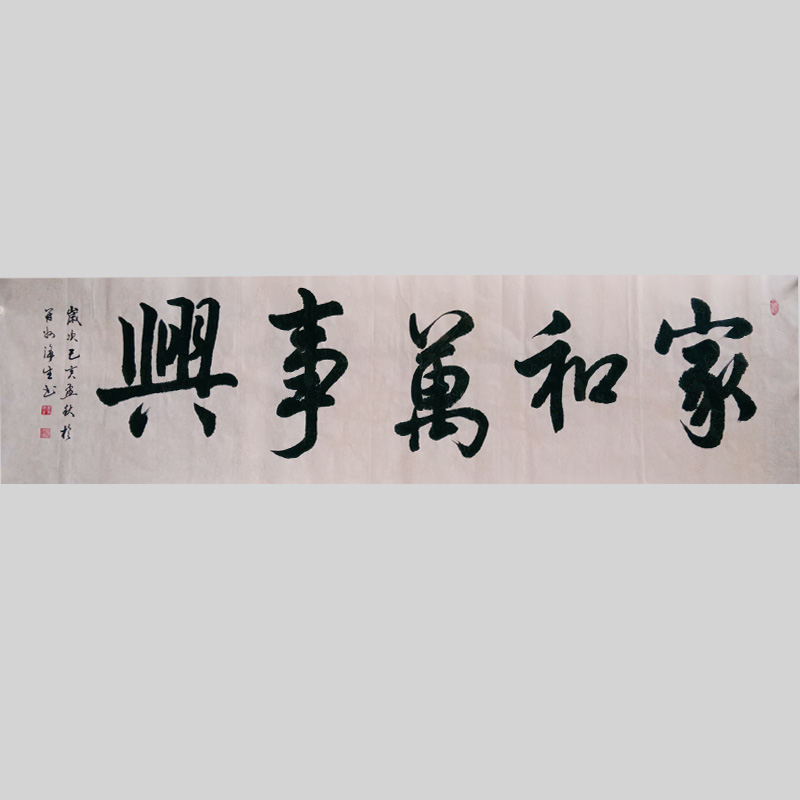 家和萬事興
歲次己亥孟秋於
生書